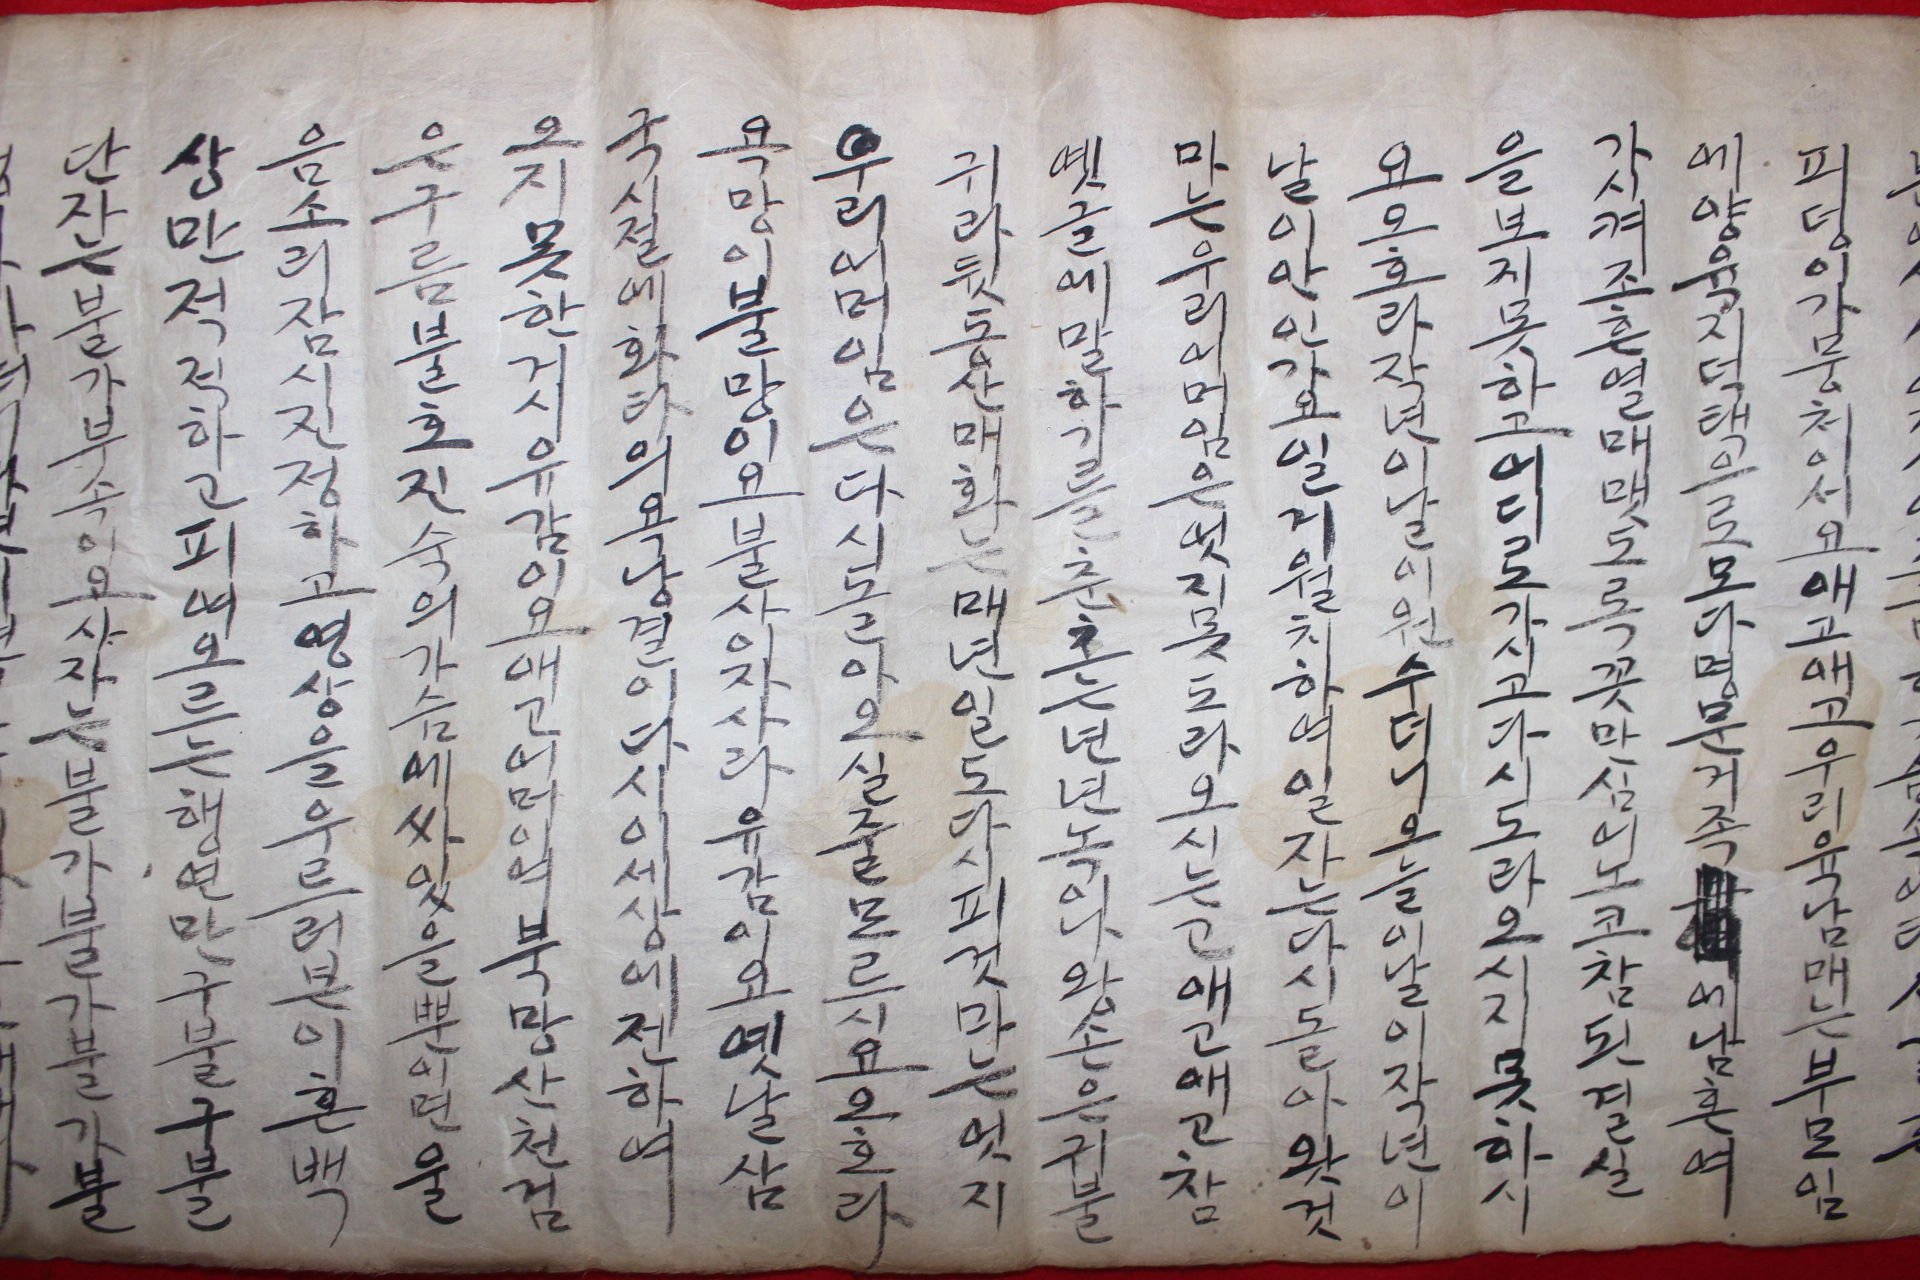 피덩이가뭉처서요애고애고우리육남매는부모임
에양육지덕택으로모다명문거족에남혼여
가시켜조흔열매맷도록꽃만심어노코참된결실
을보지못하고어디로가시고다시도라오시지못하시
요오호라작년이날이원수더니오늘이날이작년이
날이안인가요일거월치하여일자는다시돌아왓것
마는우리어머임은엇지못도라오시는고애고애고참
옛글에말하기를춘초는년년녹이나왕손은귀불
귀라뒷동산매화는매년일도다시피것마는엇지
우리어머임은다시돌아오실줄모르시요오호라
욕망이불망이요불사이자사라유감이요옛날삼
국시절에화타의요낭결이다시이세상에전하여
오지못한거시유감이요애고어머임북망산천검
은구름불호진숙의가슴에싸잇을뿐이면울
음소리잠시진정하고영상을우르러본이혼백
상만적적하고피여오르는행연만구불구불
단잔는불가부속이요사자는불가불가불가불